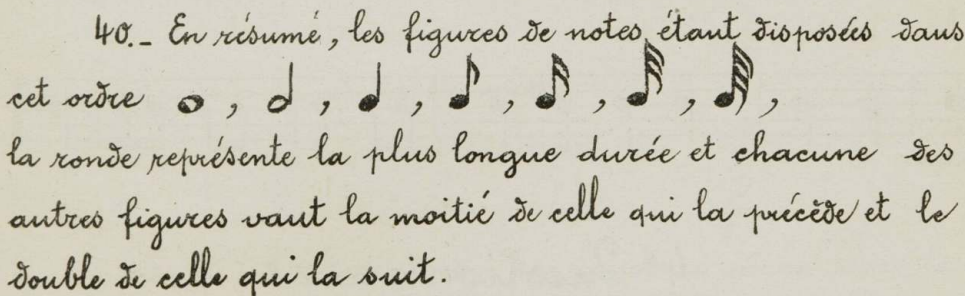 40._ En résumé, les figures de notes étant disposées dans
cet ordre 𝅝, 𝅗𝅥, 𝅘𝅥, 𝅘𝅥𝅮, 𝅘𝅥𝅯, 𝅘𝅥𝅰, 𝅘𝅥𝅱,
la ronde représente la plus longue durée et chacune des
autres figures vaut la moitié de celle qui la précède et le
double de celle qui la suit.